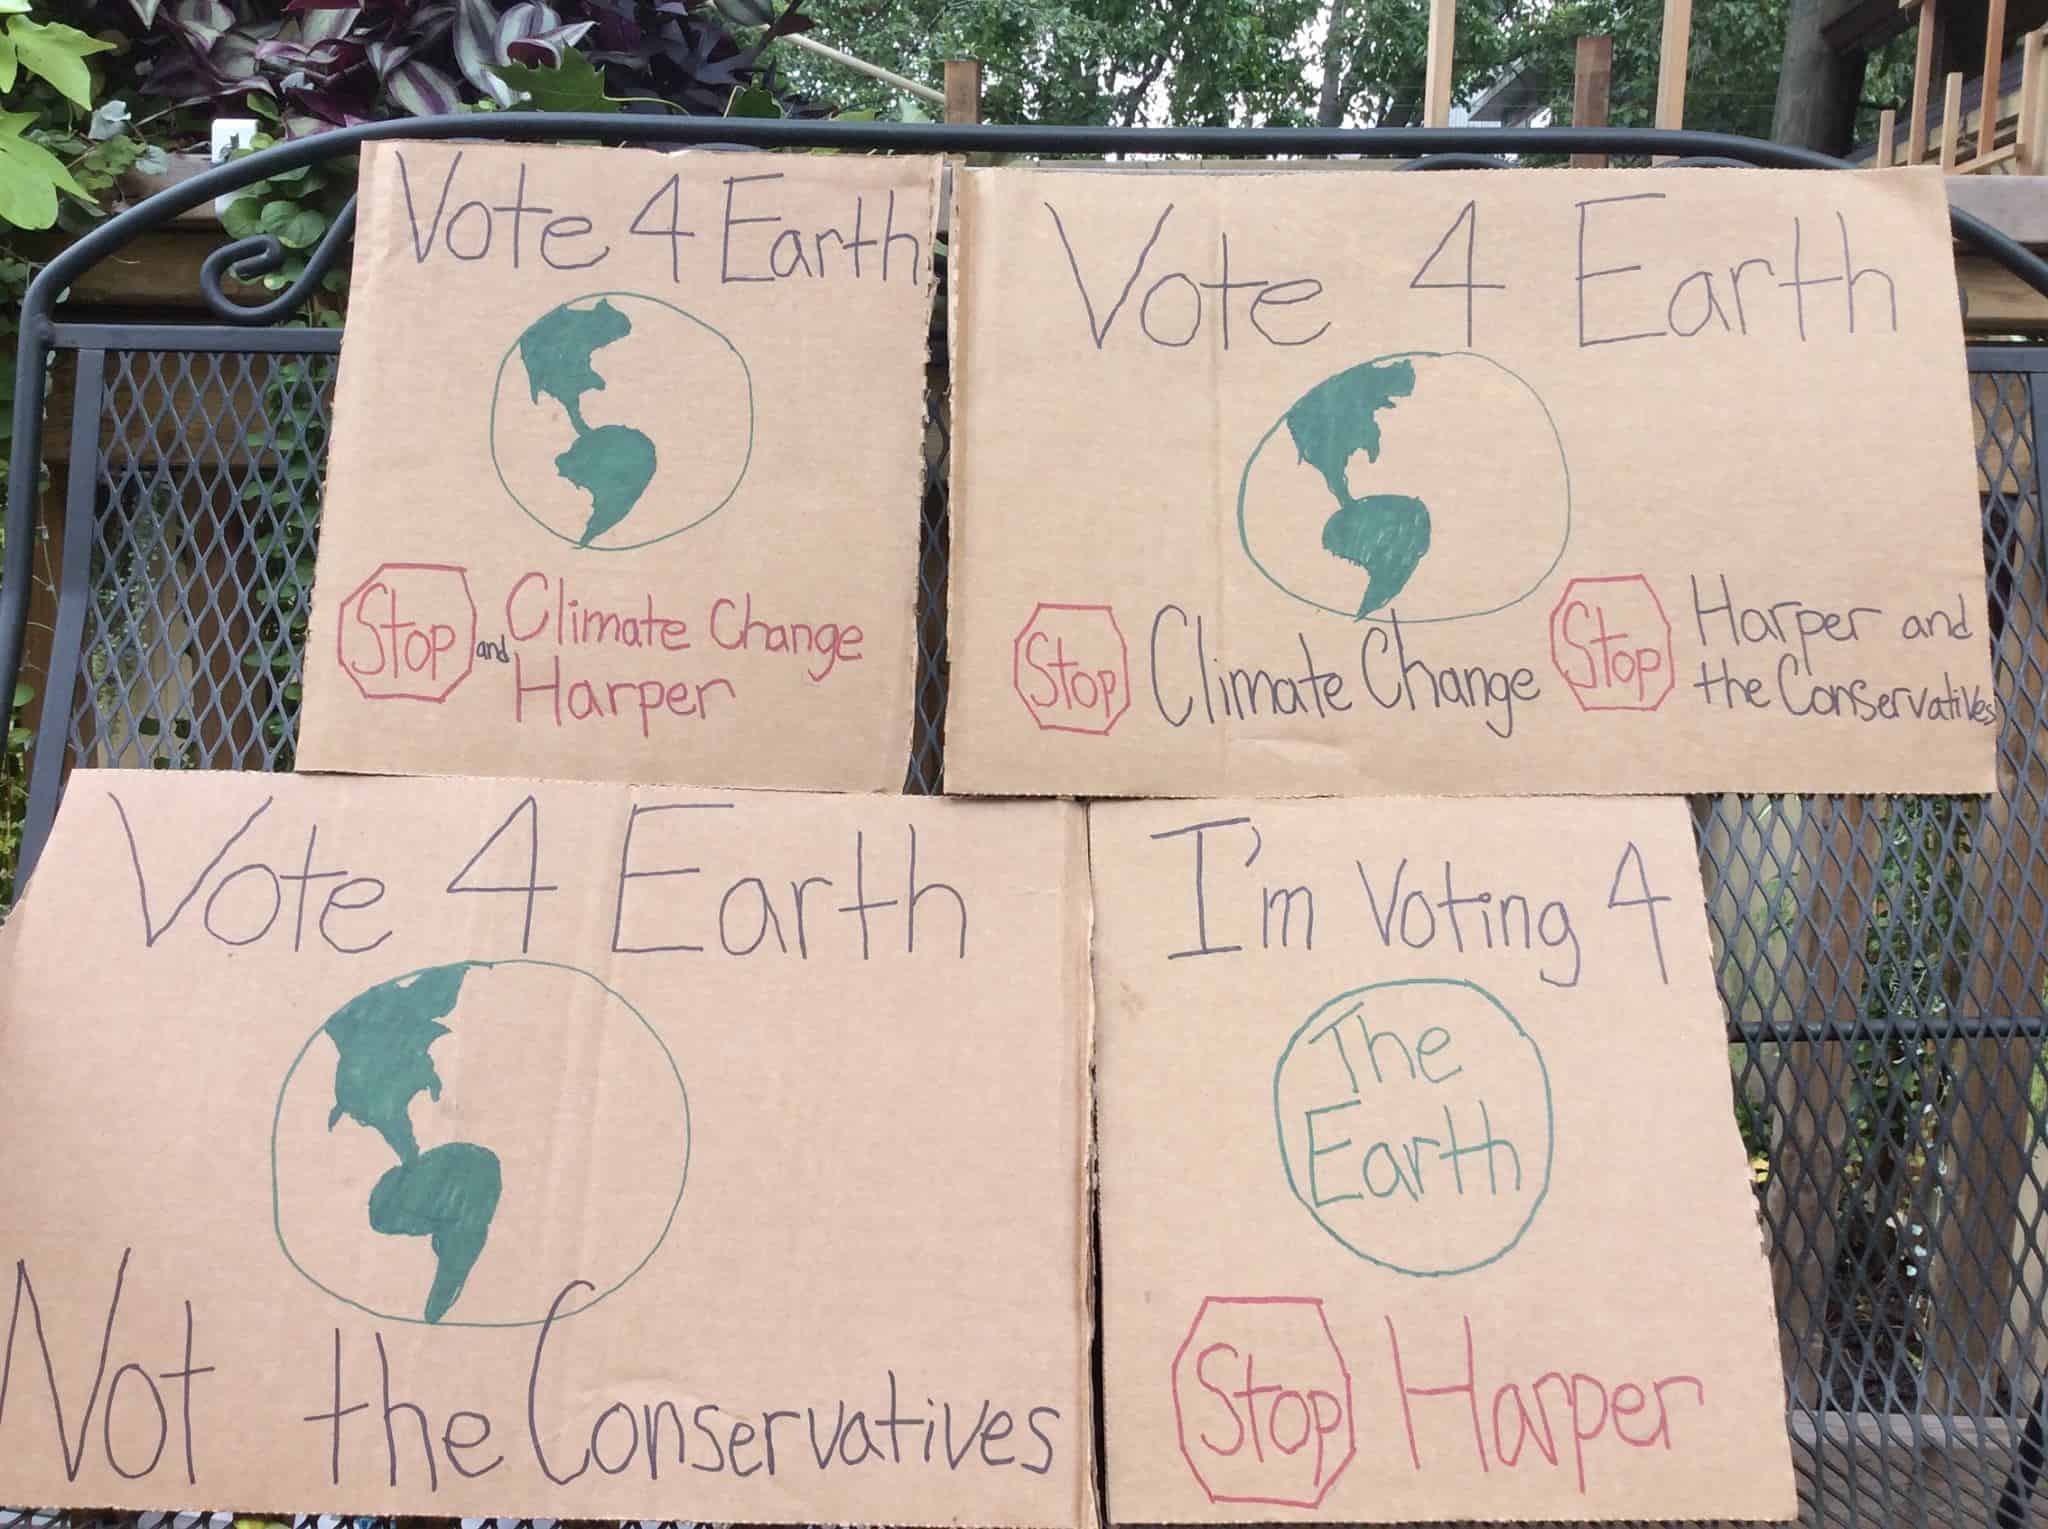 Vote 4 Earth
Stop and Climate Change
Harper
Vote 4 Earth
Stop Climate Change Stop Harper and
the Conservatives
Vote 4 Earth
Not the Conservatives
I'm Voting 4
The
Earth
Stop Harper